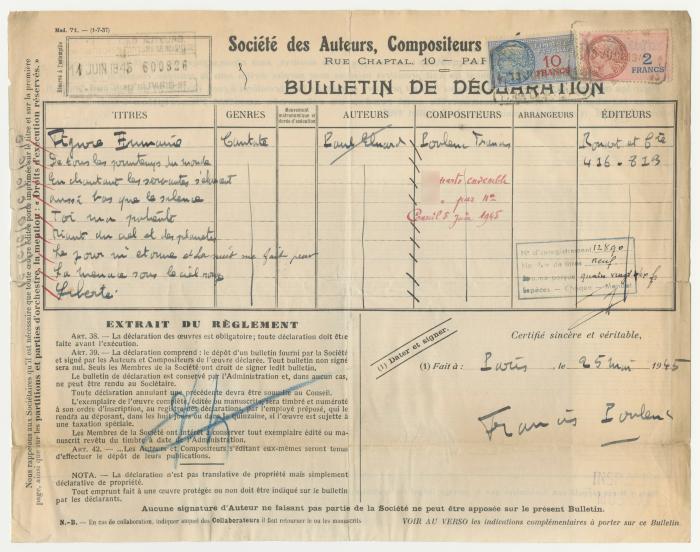 Mod. 71. — (1-7-37)
Société des Auteurs, Compositeurs
RUE CHAPTAL, 10 — PAR
BULLETIN DE DÉCLARATION
Réservé à l'estampille
14 JUIN 1945 600826
10
FRANCS
2
FRANCS
TITRES
GENRES
Mouvement métronomique et durée d'exécution
AUTEURS
COMPOSITEURS
ARRANGEURS
ÉDITEURS
Figure Humaine
Cantate
Paul Eluard
Poulenc Francis
Rouart et Cie
De tous les printemps du monde
416-823
En chantant les servantes s'élancent
aussi bas que le silence
Toi ma patiente
Riant du ciel et des planètes
Le jour m'étonne et la nuit me fait peur
La menace sous le ciel rouge
Liberté
ensemble
par Mr
Conseil 5 Juin 1945
N° d'enregistrement 12890
neuf
Espèces — Chèque — Mandat
EXTRAIT DU RÈGLEMENT
ART. 38. — La déclaration des œuvres est obligatoire; toute déclaration doit être
faite avant l'exécution.
ART. 39. — La déclaration comprend : le dépôt d'un bulletin fourni par la Société
et signé par les Auteurs et Compositeurs de l'œuvre déclarée. Tout bulletin non signé
sera nul. Seuls les Membres de la Société ont droit de signer ledit bulletin.
Le bulletin de déclaration est conservé par l'Administration et, dans aucun cas,
ne peut être rendu au Sociétaire.
Toute déclaration annulant une précédente devra être soumise au Conseil.
L'exemplaire de l'œuvre complète, éditée ou manuscrite
à son ordre d'inscription, au registre des déclarations, par l'employé préposé, qui le
rendra au déposant, dans les huit jours ou dans la quinzaine, si l'œuvre est sujette à
une taxation spéciale.
Les Membres de la Société ont intérêt à conserver tout exemplaire édité ou ma-
nuscrit revêtu du timbre à date d'Administration.
ART. 42. — ...Les Auteurs et Compositeurs s'éditant eux-mêmes seront tenus
d'effectuer le dépôt de leurs publications.
NOTA. — La déclaration n'est pas translative de propriété mais simplement
déclarative de propriété.
Tout emprunt fait à une œuvre protégée ou non doit être indiqué sur le bulletin
par les déclarants.
(1) Dater et signer.
Certifié sincère et véritable,
(1) Fait à : Paris , le 25 mai 1945
Francis Poulenc
Aucune signature d'Auteur ne faisant pas partie de la Société ne peut être apposée sur le présent Bulletin.
N.-B. — En cas de collaboration, indiquer auquel des Collaborateurs il faut retourner le ou les manuscrits
VOIR AU VERSO les indications complémentaires à porter sur ce Bulletin.
Nous rappelons aux Sociétaires qu'il est nécessaire que toute œuvre éditée porte imprimée sur le titre et sur la première
page, ainsi que sur les partitions et parties d'orchestre, la mention : « Droits d'exécution réservés. »